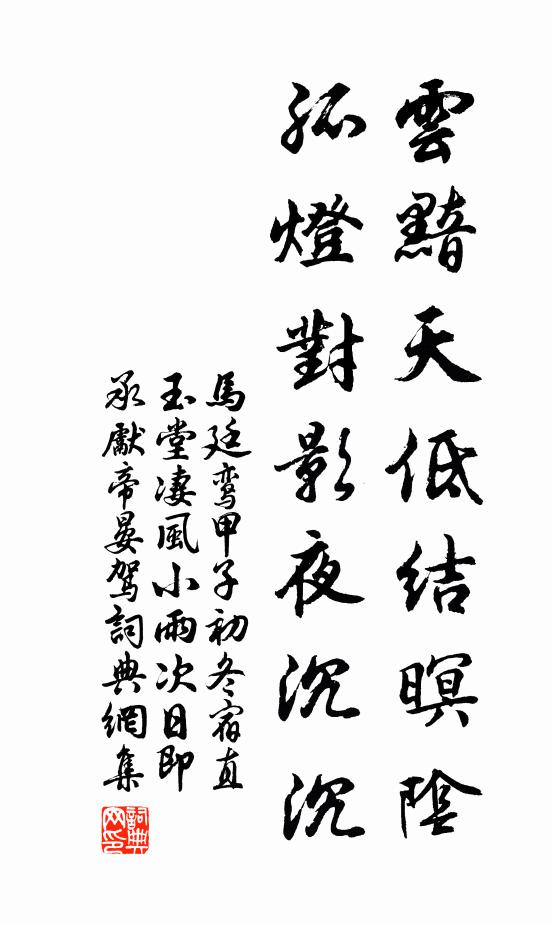 雲黯天低結暝陰
孤燈對影夜沉沉
馬廷鸞甲子初冬宿直
玉堂凄風小雨次日即
承獻帝晏駕詞典網集
詞典網印